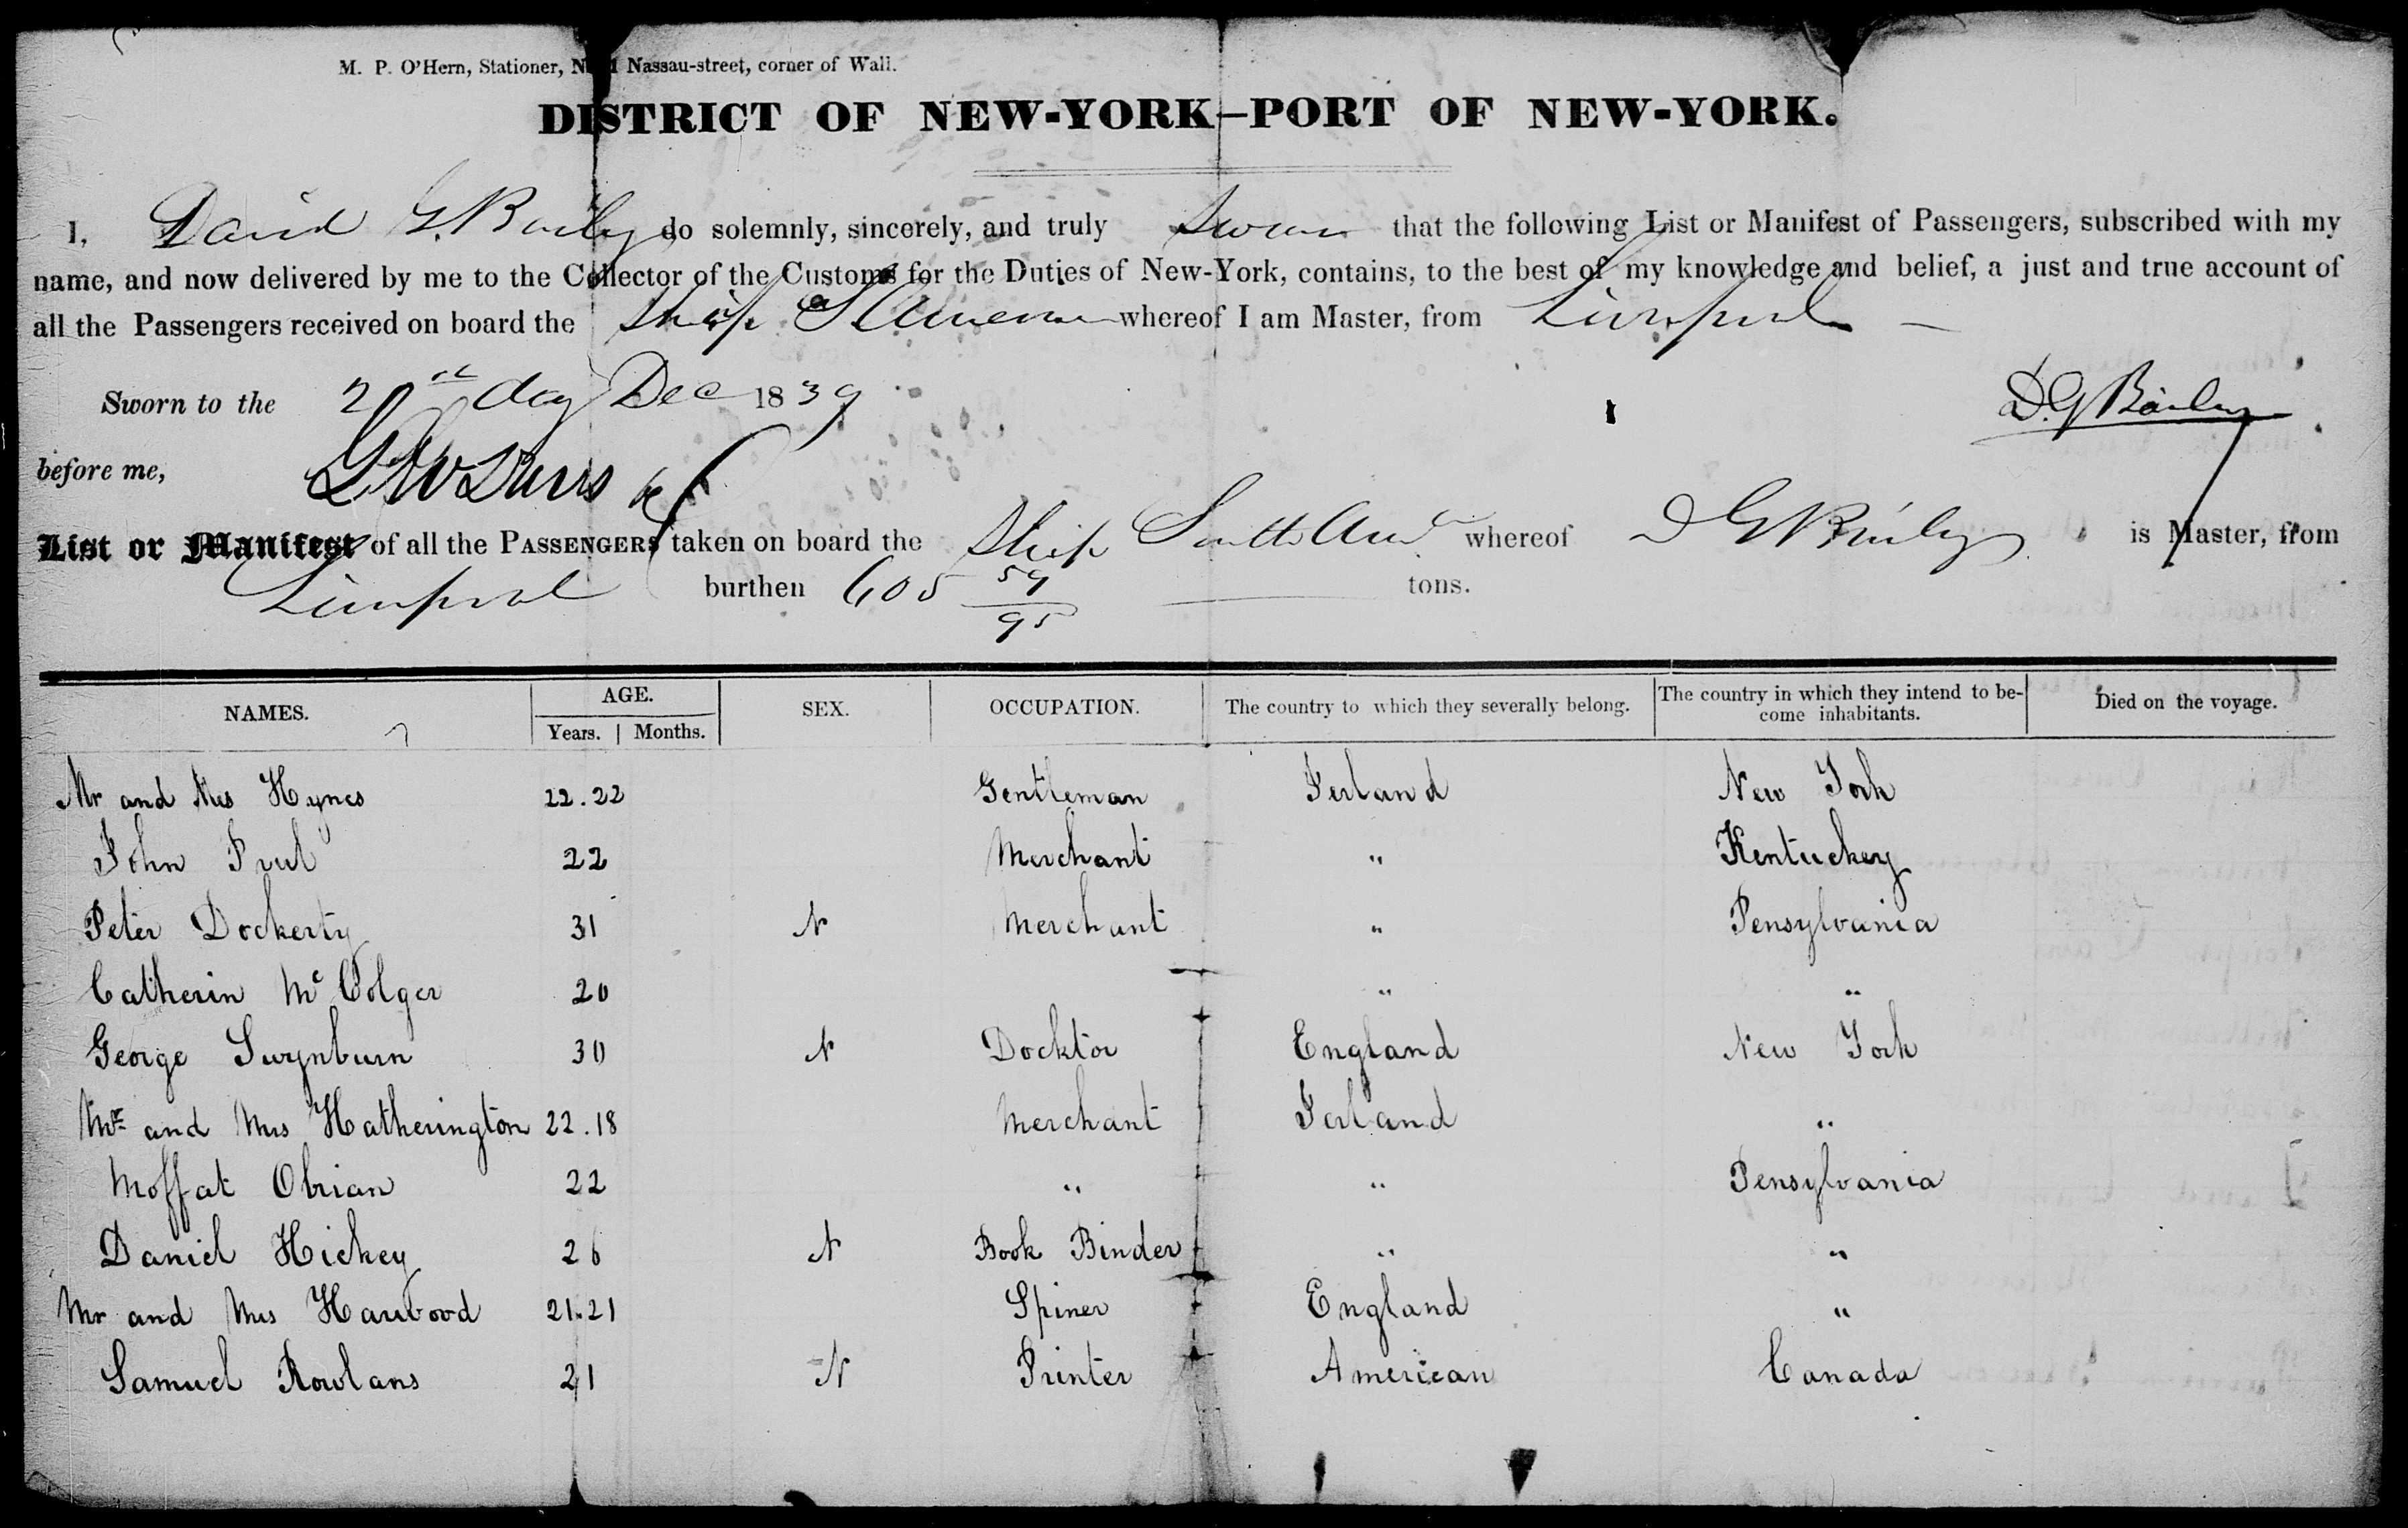 M. P. O'Hern, Stationer, Nassau-street, corner of Wall.
DISTRICT OF NEW-YORK—PORT OF NEW-YORK.
I, David G. Baily do solemnly, sincerely, and truly swear that the following List or Manifest of Passengers, subscribed with my
name, and now delivered by me to the Collector of the Customs for the Duties of New-York, contains, to the best of my knowledge and belief, a just and true account of
all the Passengers received on board the Ship S America whereof I am Master, from Liverpool
Sworn to the 20th day Dec 1839
D. G Baily
before me,
List or Manifest of all the PASSENGERS taken on board the Ship South Amc whereof D G Baily is Master, from
Liverpool burthen 605 59/95 tons.
NAMES. AGE. SEX. OCCUPATION. The country to which they severally belong. The country in which they intend to be-
come inhabitants. Died on the voyage.
Years. Months.
Mr and Mrs Hynes 22.22 Gentleman Ierland New York
John 22 Merchant " Kentuckey
Peter Dockerty 31 Merchant " Pensylvania
Catherin Mc Colger 20 " "
George Swynburn 30 Docktor England New York
Mr and Mrs Hatherington 22.18 Merchant Ierland "
Moffat Obrian 22 " " Pensylvania
Daniel Hickey 26 Book Binder " "
Mr and Mrs Harwood 21.21 Spiner England "
Samuel Rowlans 21 Printer American Canada